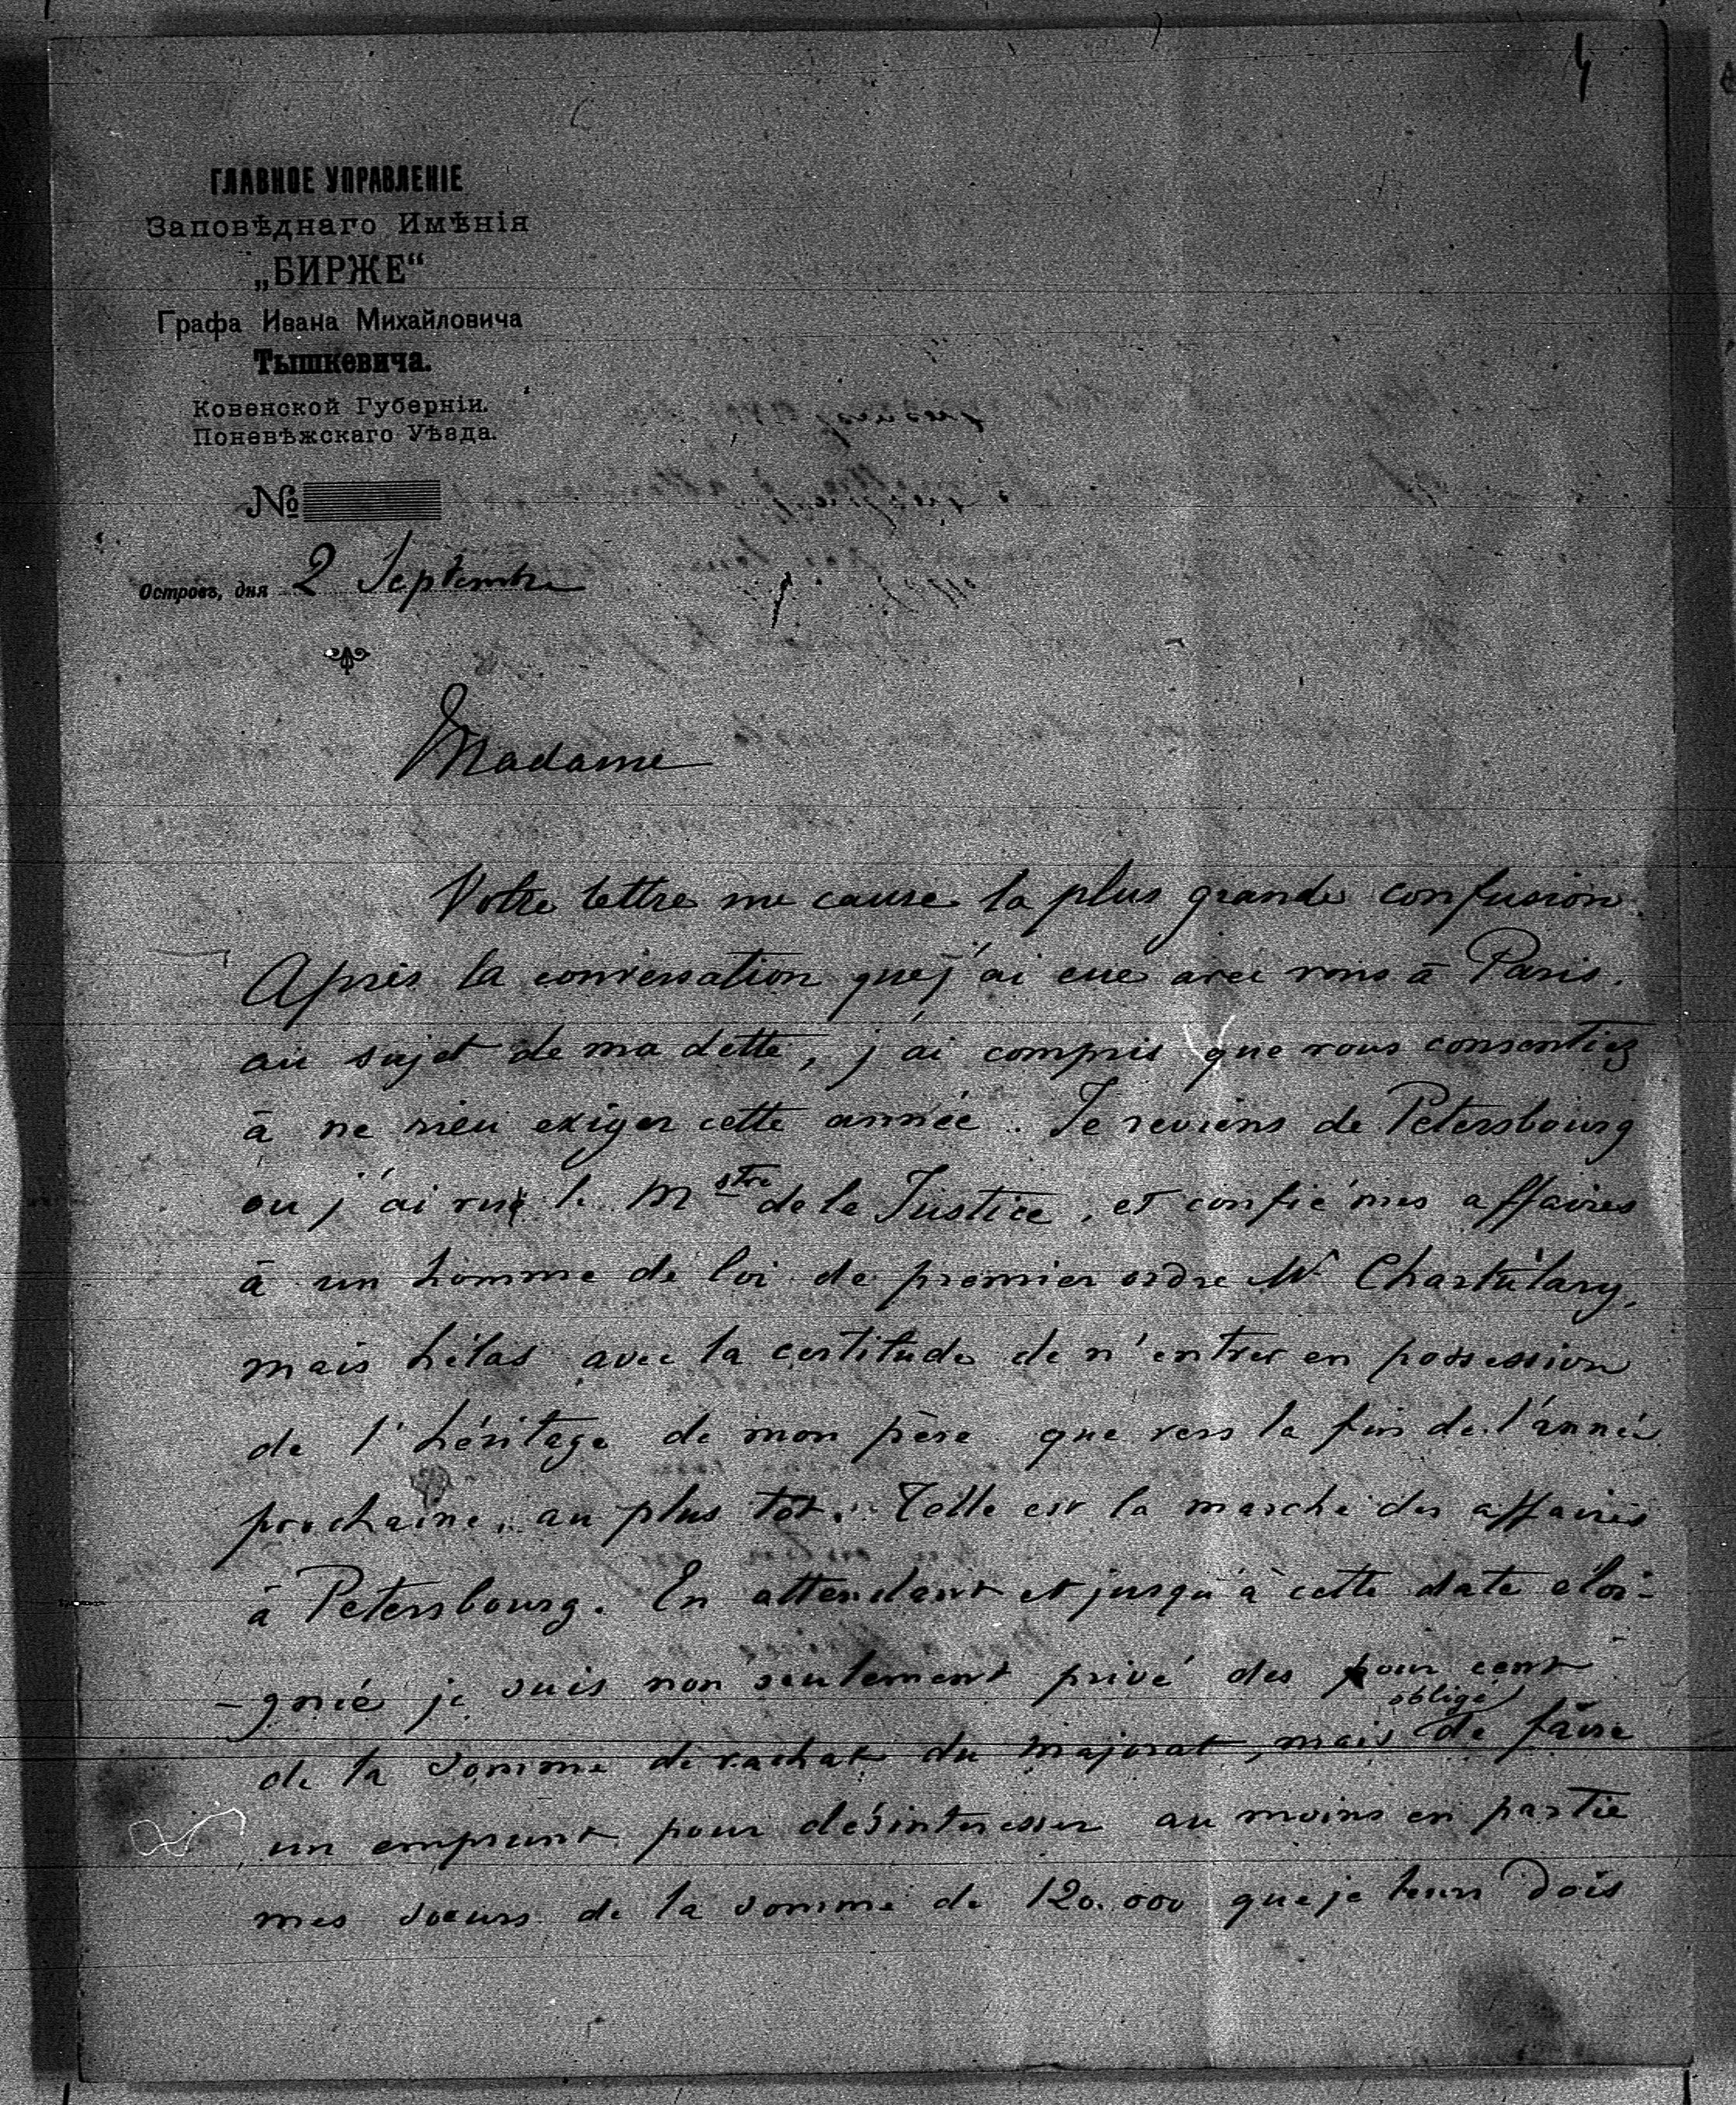 4
ГЛАВНОЕ УПРАВЛЕНІЕ
Заповѣднаго Имѣнія
„БИРЖЕ“
Графа Ивана Михайловича
Тышкевича.
Ковенской Губерніи.
Поневѣжскаго Уѣзда.
№
Островъ, дня 2 Septembre
Madame
Votre lettre me cause la plus grande confusion.
Après la conversation que j'ai eue avec vous à Paris.
au sujet de ma dette, j'ai compris que vous consentiez
à ne rien exiger cette année. Je reviens de Petersbourg
ou j'ai vu le Mstre de la Justice, et confié mes affaires
à un homme de loi de premier ordre Mr Chartulary,
mais hélas avec la certitude de n'entrer en possession
de l'héritage de mon père que vers la fin de l'année
prochaine, au plus tôt. Telle est la marche des affaires
à Petersbourg. En attendant et jusqu'à cette date éloi-
-gnée je suis non seulement privé des pour cent
obligé
de la somme de rachat du majorat, mais de faire
un emprunt pour désintéresser au moins en partie
mes soeurs de la somme de 120.000 que je leurs dois